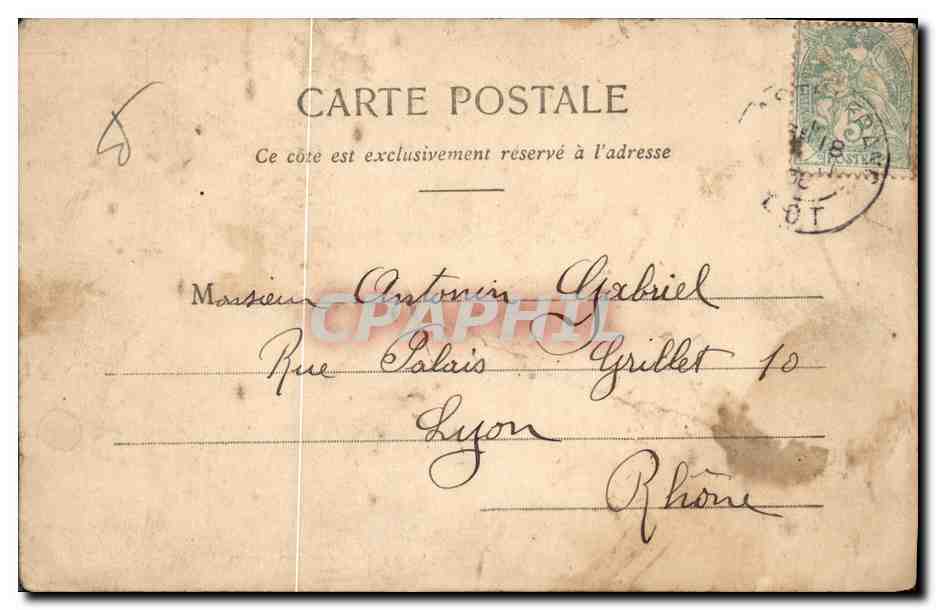 CARTE POSTALE
Ce côté est exclusivement réservé à l'adresse
5
POSTES
18
LOT
Monsieur Antonin Gabriel
CPAPHIL
Rue Palais Grillet 10
Lyon
Rhône